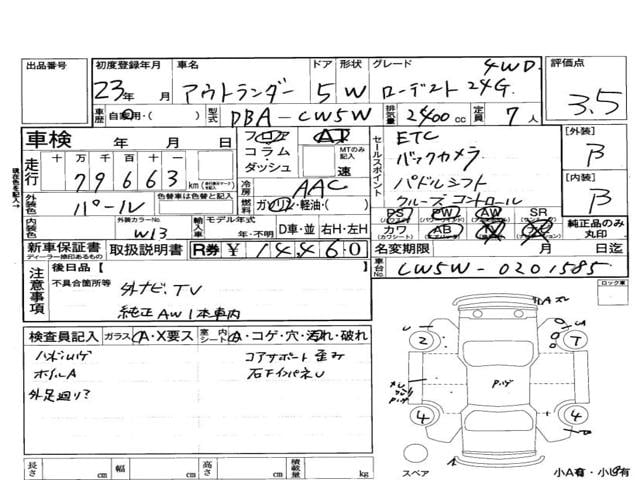 出品番号
初度登録年月 車名 ドア 形状 グレード 評価点
4WD
23年 月 アウトランダー 5 W ローデスト 24G 3.5
車歴 自家用・( ) 型式 DBA-CW5W 排気量 2400cc 定員 7人
車検 年 月 日 フロア・コラム・ダッシュ AT MTのみ記入 速
セールスポイント ETC
バックカメラ
パドルシフト
クルーズコントロール
[外装] B
[内装] B
走行 十万千百十一
79663 km
冷房 AAC
外装色 パール 色替車は色替と記入 燃料 ガソリン・軽油・( )
PS AW SR
カワ AB TV ナビ
純正品のみ丸印
内装色 外装カラーNo. W13 輸入車 モデル年式 年・不明 D車・並 右H・左H
新車保証書 取扱説明書 R券 ¥ 14460 名変期限 月 日迄
ディーラー捺印あるもの
車台No. CW5W-0201585
現在色を記入→
注意事項 後日品【
不具合箇所等 外ナビ、TV
純正AW1本車内
ロック車
検査員記入 ガラス A・X要ス 室内シート コゲ・穴・汚れ・破れ
コアサポート 歪み
ホイルA
外足廻り?
2 T
4 4
スペア 小A有・小凹有
長さ cm 幅 cm 高さ cm 積載量 kg